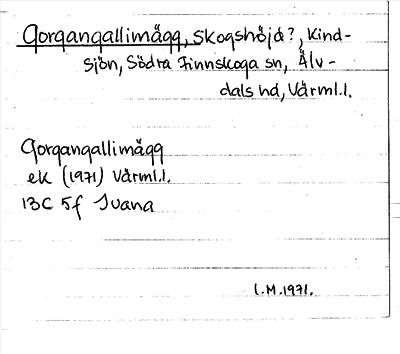 Gorgangallimägg, skogshöjd?, Kind-
sjön, Södra Finnskoga sn, Älv-
dals hd, Värml.l.
Gorgangallimägg
ek (1971) Värml.l.
13C 5f Juana
I.M.1971.